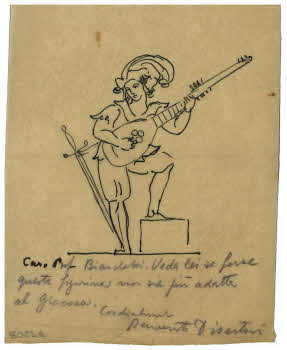 Caro Prof. Biandolsi. Veda lei se forse
questo figurino non sia più adatto
al Giacosa.
Cordialmente
Benvenuto Disertori